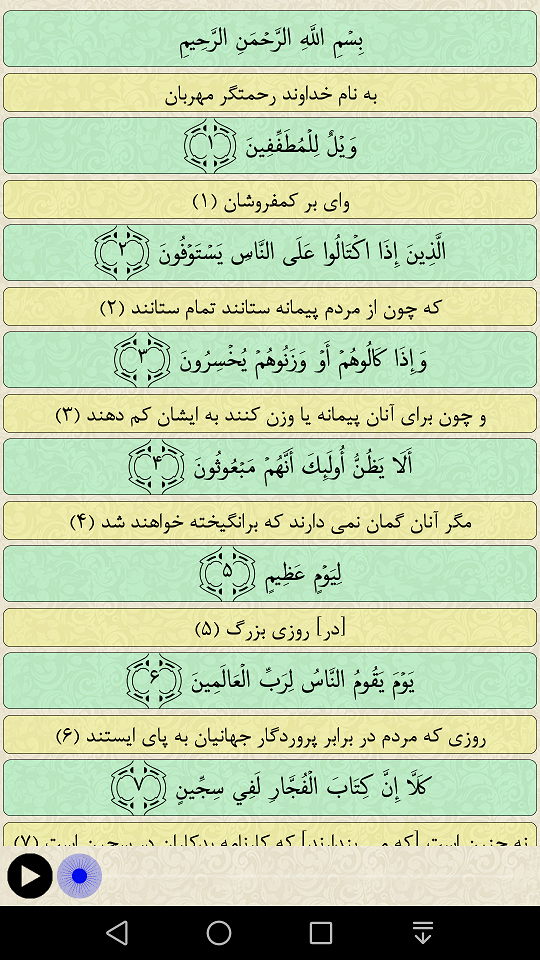 بِسْمِ اللَّهِ الرَّحْمَنِ الرَّحِيمِ
به نام خداوند رحمتگر مهربان
وَيْلٌ لِلْمُطَفِّفِينَ ﴿۱﴾
وای بر کمفروشان (۱)
الَّذِينَ إِذَا اكْتَالُوا عَلَى النَّاسِ يَسْتَوْفُونَ ﴿۲﴾
که چون از مردم پیمانه ستانند تمام ستانند (۲)
وَإِذَا كَالُوهُمْ أَوْ وَزَنُوهُمْ يُخْسِرُونَ ﴿۳﴾
و چون برای آنان پیمانه یا وزن کنند به ایشان کم دهند (۳)
أَلَا يَظُنُّ أُولَئِكَ أَنَّهُمْ مَبْعُوثُونَ ﴿۴﴾
مگر آنان گمان نمی دارند که برانگیخته خواهند شد (۴)
لِيَوْمٍ عَظِيمٍ ﴿۵﴾
[در] روزی بزرگ (۵)
يَوْمَ يَقُومُ النَّاسُ لِرَبِّ الْعَالَمِينَ ﴿۶﴾
روزی که مردم در برابر پروردگار جهانیان به پای ایستند (۶)
كَلَّا إِنَّ كِتَابَ الْفُجَّارِ لَفِي سِجِّينٍ ﴿۷﴾
نه چنین است [که می پندارند] که کارنامه بدکاران در سجین است (۷)